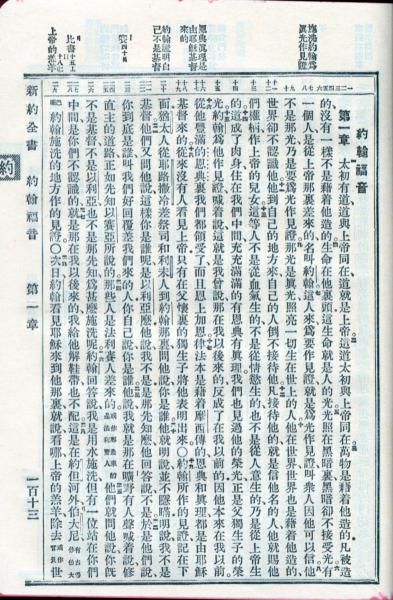 施洗約翰為眞光作見證
恩典眞理是由耶穌基督來的
約翰說明自己不是基督
上帝的羔羊
約翰福音
第一章 太初有道道與上帝同在道就是上帝這道太初與上帝同在萬物是藉着他造的凡被造
的沒有一樣不是藉着他造的生命在他裏頭這生命就是人的光光照在黑暗裏黑暗卻不接受光有
一個人是從上帝那裏差來的名叫約翰這人來為要作見證就是為光作見證叫衆人因他可以信他
不是那光乃是要為光作見證那光是眞光照亮一切生在世上的人他在世界世界也是藉着他造的
世界卻不認識他他到自己的地方來自己的人倒不接待他凡接待他的就是信他名的人他就賜他
們權柄作上帝的兒女這等人不是從血氣生的不是從情慾生的也不是從人意生的乃是從上帝生
的道成了肉身住在我們中間充充滿滿的有恩典有眞理我們也見過他的榮光正是父獨生子的榮
光約翰為他作見證喊着說這就是我曾說那在我以後來的反成了在我以前的因他本來在我以前
從他豐滿的恩典裏我們都領受了而且恩上加恩律法本是藉着摩西傳的恩典和眞理都是由耶穌
基督來的從來沒有人看見上帝只有在父懷裏的獨生子將他表明出來〇約翰所作的見證記在下
面猶太人從耶路撒冷差祭司和利未人到約翰那裏問他說你是誰他就明說並不隱瞞明說我不是
基督他們又問他說這樣你是誰呢是以利亞麼他說我不是是那先知麼他回答說不是於是他們說
你到底是誰叫我們好回覆差我們來的人你自己說你是誰他說我就是那在曠野有人聲喊着說修
直主的道路正如先知以賽亞所說的那些人是法利賽人差來的或作那差來的是法利賽人他們就問他說你旣
不是基督不是以利亞也不是那先知為甚麼施洗呢約翰回答說我是用水施洗但有一位站在你們
中間是你們不認識的就是那在我以後來的我給他解鞋帶也不配這是在約但河外伯大尼
約翰施洗的地方作的見證〇次日約翰看見耶穌來到他那裏就說看哪上帝的羔羊除去或作背負世
新約全書 約翰福音 第一章 一百十三
約